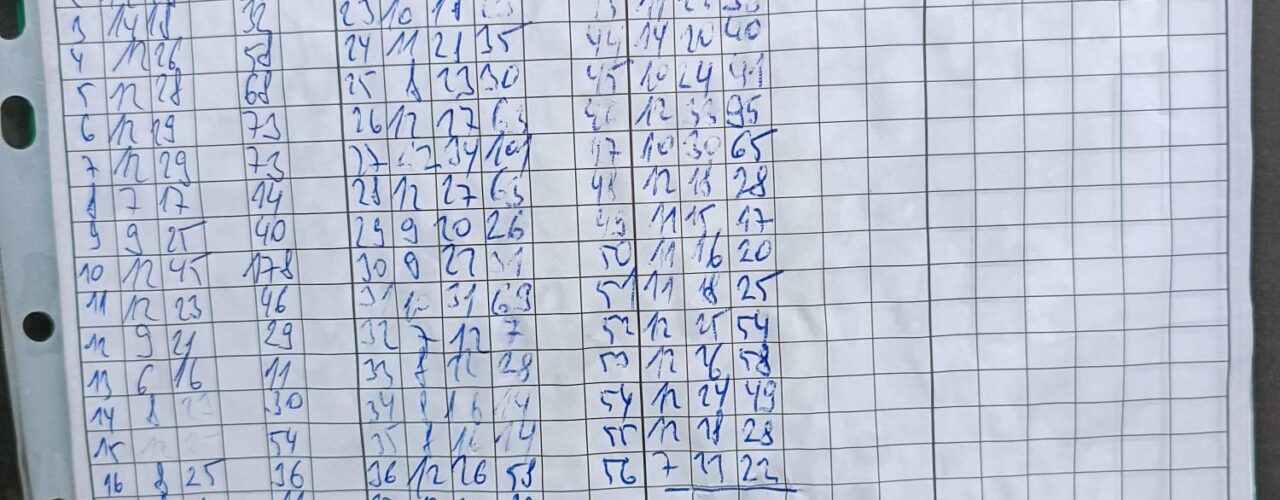 3 14 18 32 23 10
4 12 26 58 24 11 21 35 44 14 20 40
5 12 28 68 25 8 23 30 45 10 24 41
6 12 29 73 26 12 27 63 12 33 95
7 12 29 73 27 34 101 47 10 30 65
8 7 17 14 28 12 27 63 48 12 18 28
9 9 25 40 29 9 20 26 49 11 15 17
10 12 45 178 30 8 31 50 11 16 20
11 12 23 46 31 10 31 69 51 11 18 25
12 9 21 29 32 7 12 7 52 12 25 54
13 6 16 11 33 8 28 53 12 26 58
14 8 30 34 8 16 14 54 12 24 49
15 54 35 8 16 14 55 12 18 28
16 8 25 36 36 12 26 58 56 7 22